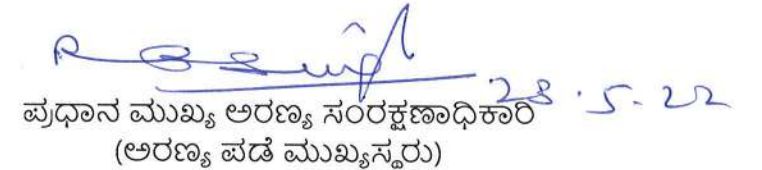 28.5.22
ಪ್ರಧಾನ ಮುಖ್ಯ ಅರಣ್ಯ ಸಂರಕ್ಷಣಾಧಿಕಾರಿ
(ಅರಣ್ಯ ಪಡೆ ಮುಖ್ಯಸ್ಥರು)